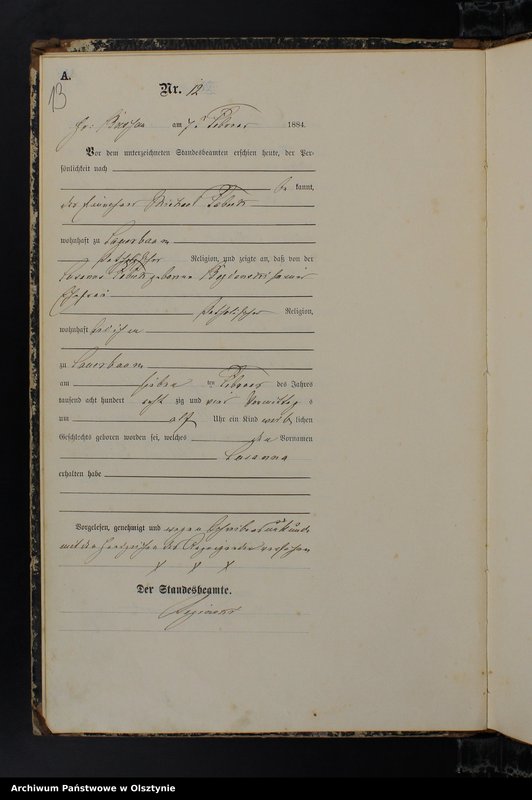 A.
13
Nr. 12
am 7. Februar 1884.
Vor dem unterzeichneten Standesbeamten erschien heute, der Per-
sönlichkeit nach
be kannt,
der Michael
wohnhaft zu
katholischer Religion, und zeigte an, daß von der
geborene
Ehefrau
katholischer Religion,
wohnhaft bei ihm
zu
am sieben ten Februar des Jahrs
tausend acht hundert acht zig und vier Vormittag s
um elf Uhr ein Kind weib lichen
Geschlechts geboren worden sei, welches den Vornamen
Susanna
erhalten habe
Vorgelesen, genehmigt und wegen Schreibensunkunde
mit den Handzeichen des versehen
x x x
Der Standesbeamte.
Archiwum Państwowe w Olsztynie